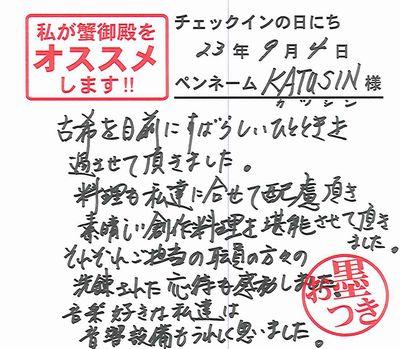 私が蟹御殿を
オススメ
します!!
チェックインの日にち
23年9月4日
ペンネーム KATUSIN 様
カツシン
古希を目前にすばらしいひとときを
過させて頂きました。
料理も私達に合せて配慮頂き
素晴しい創作料理を堪能させて頂き
ました。
それぞれご担当の職員の方々の
洗練された応待も感動しました。
音楽好きな私達は
音響設備もうれしく思いました。
お墨
つき